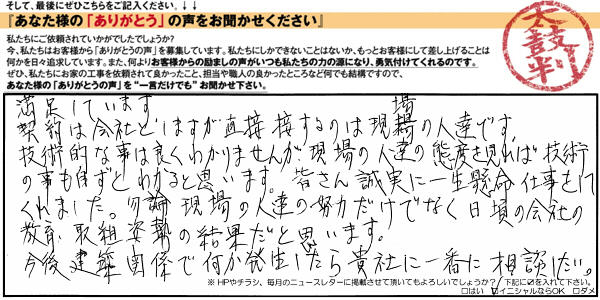 そして、最後にぜひこちらをご記入ください。↓↓
『あなた様の「ありがとう」の声をお聞かせください』
私たちにご依頼されていかがでしたでしょうか?
今、私たちはお客様から「ありがとうの声」を募集しています。私たちにしかできないことはないか、もっとお客様にして差し上げることは
何かを日々追求しています。また、何よりお客様からの励ましの声がいつも私たちの力の源になり、勇気付けてくれるのです。
ぜひ、私たちにお家の工事を依頼されて良かったこと、担当や職人の良かったところなど何でも結構ですので、
あなた様の「ありがとうの声」を"一言だけでも"お聞かせ下さい。
太鼓判
満足しています
場
契約は会社としますが直接接するのは現場の人達です。
技術的な事は良くわかりませんが、現場の人達の態度を見れば技術
の事も自ずとわかると思います。皆さん誠実に一生懸命仕事をして
くれました。勿論現場の人達の努力だけでなく日頃の会社の
教育、取組姿勢の結果だと思います。
今後建築関係で何か発生したら貴社に一番に相談したい。
※HPやチラシ、毎月のニュースレターに掲載させて頂いてもよろしいでしょうか?/下記に☑を入れて下さい。
□はい ☑イニシャルならOK □ダメ